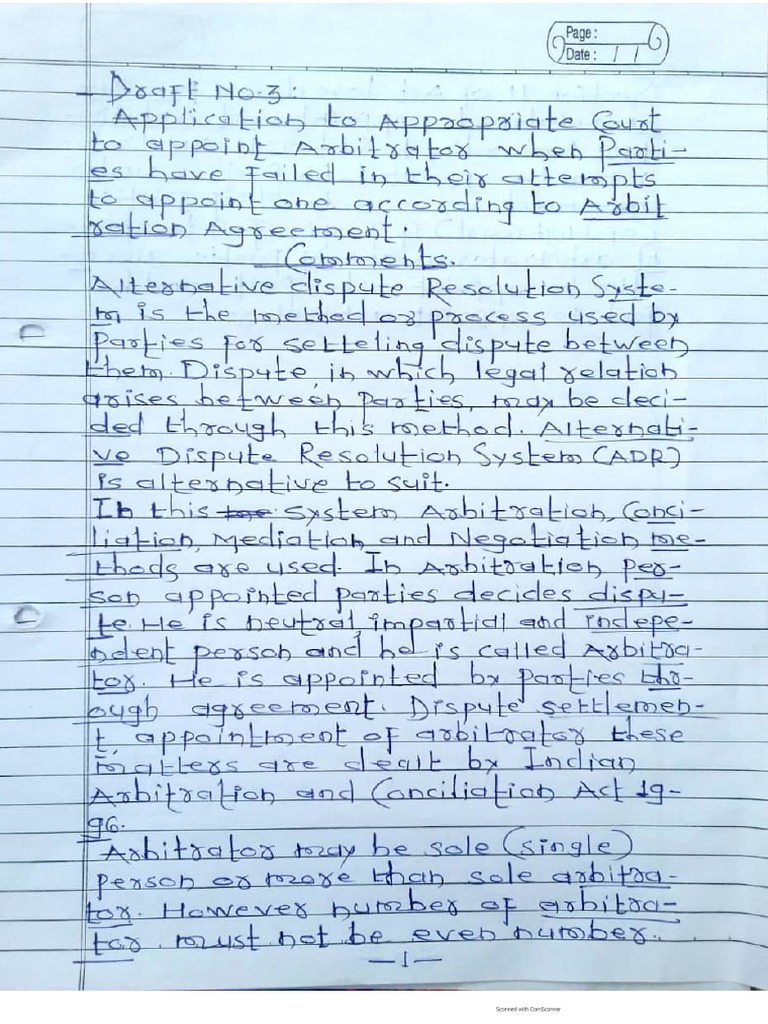 Page :
Date : / /
Draft No.3.
Application to Appropriate Court
to appoint Arbitrator when Parti-
es have failed in their attempts
to appoint one according to Arbit
ration Agreement.
Comments.
Alternative dispute Resolution Syste-
m is the method or process used by
Parties for setteling dispute between
them. Dispute, in which legal relation
arises between Parties, may be deci-
ded through this method. Alternati-
ve Dispute Resolution System (ADR)
is alternative to suit.
In this the system Arbitration, Conci-
liation, Mediation and Negotiation me-
thods are used. In Arbitration per-
son appointed parties decides dispu-
te. He is neutral, impartial and indepe-
ndent person and he is called Arbitra-
tor. He is appointed by parties thr-
ough agreement. Dispute settlemen-
t, appointment of arbitrator these
matters are dealt by Indian
Arbitration and Conciliation Act 19-
96.
Arbitrator may be sole (single)
person or more than sole arbitra-
tor. However number of arbitra-
tor must not be even number.
—1—
Scanned with CamScanner